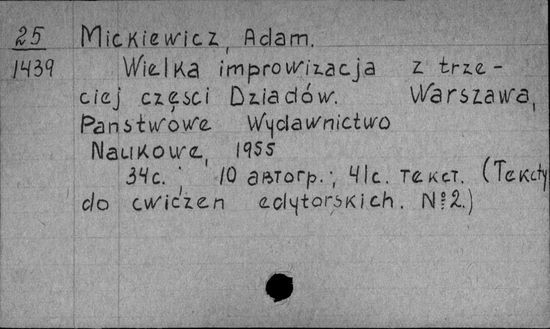 25 Mickiewicz, Adam.
1439 Wielka improwizacja z trze-
ciej częsci Dziadów. Warszawa,
Państwowe Wydawnictwo
Naukowe, 1955
34c.; 10 автогр.; 41c. текст. (Teksty
do cwiczen edytorskich. № 2.)